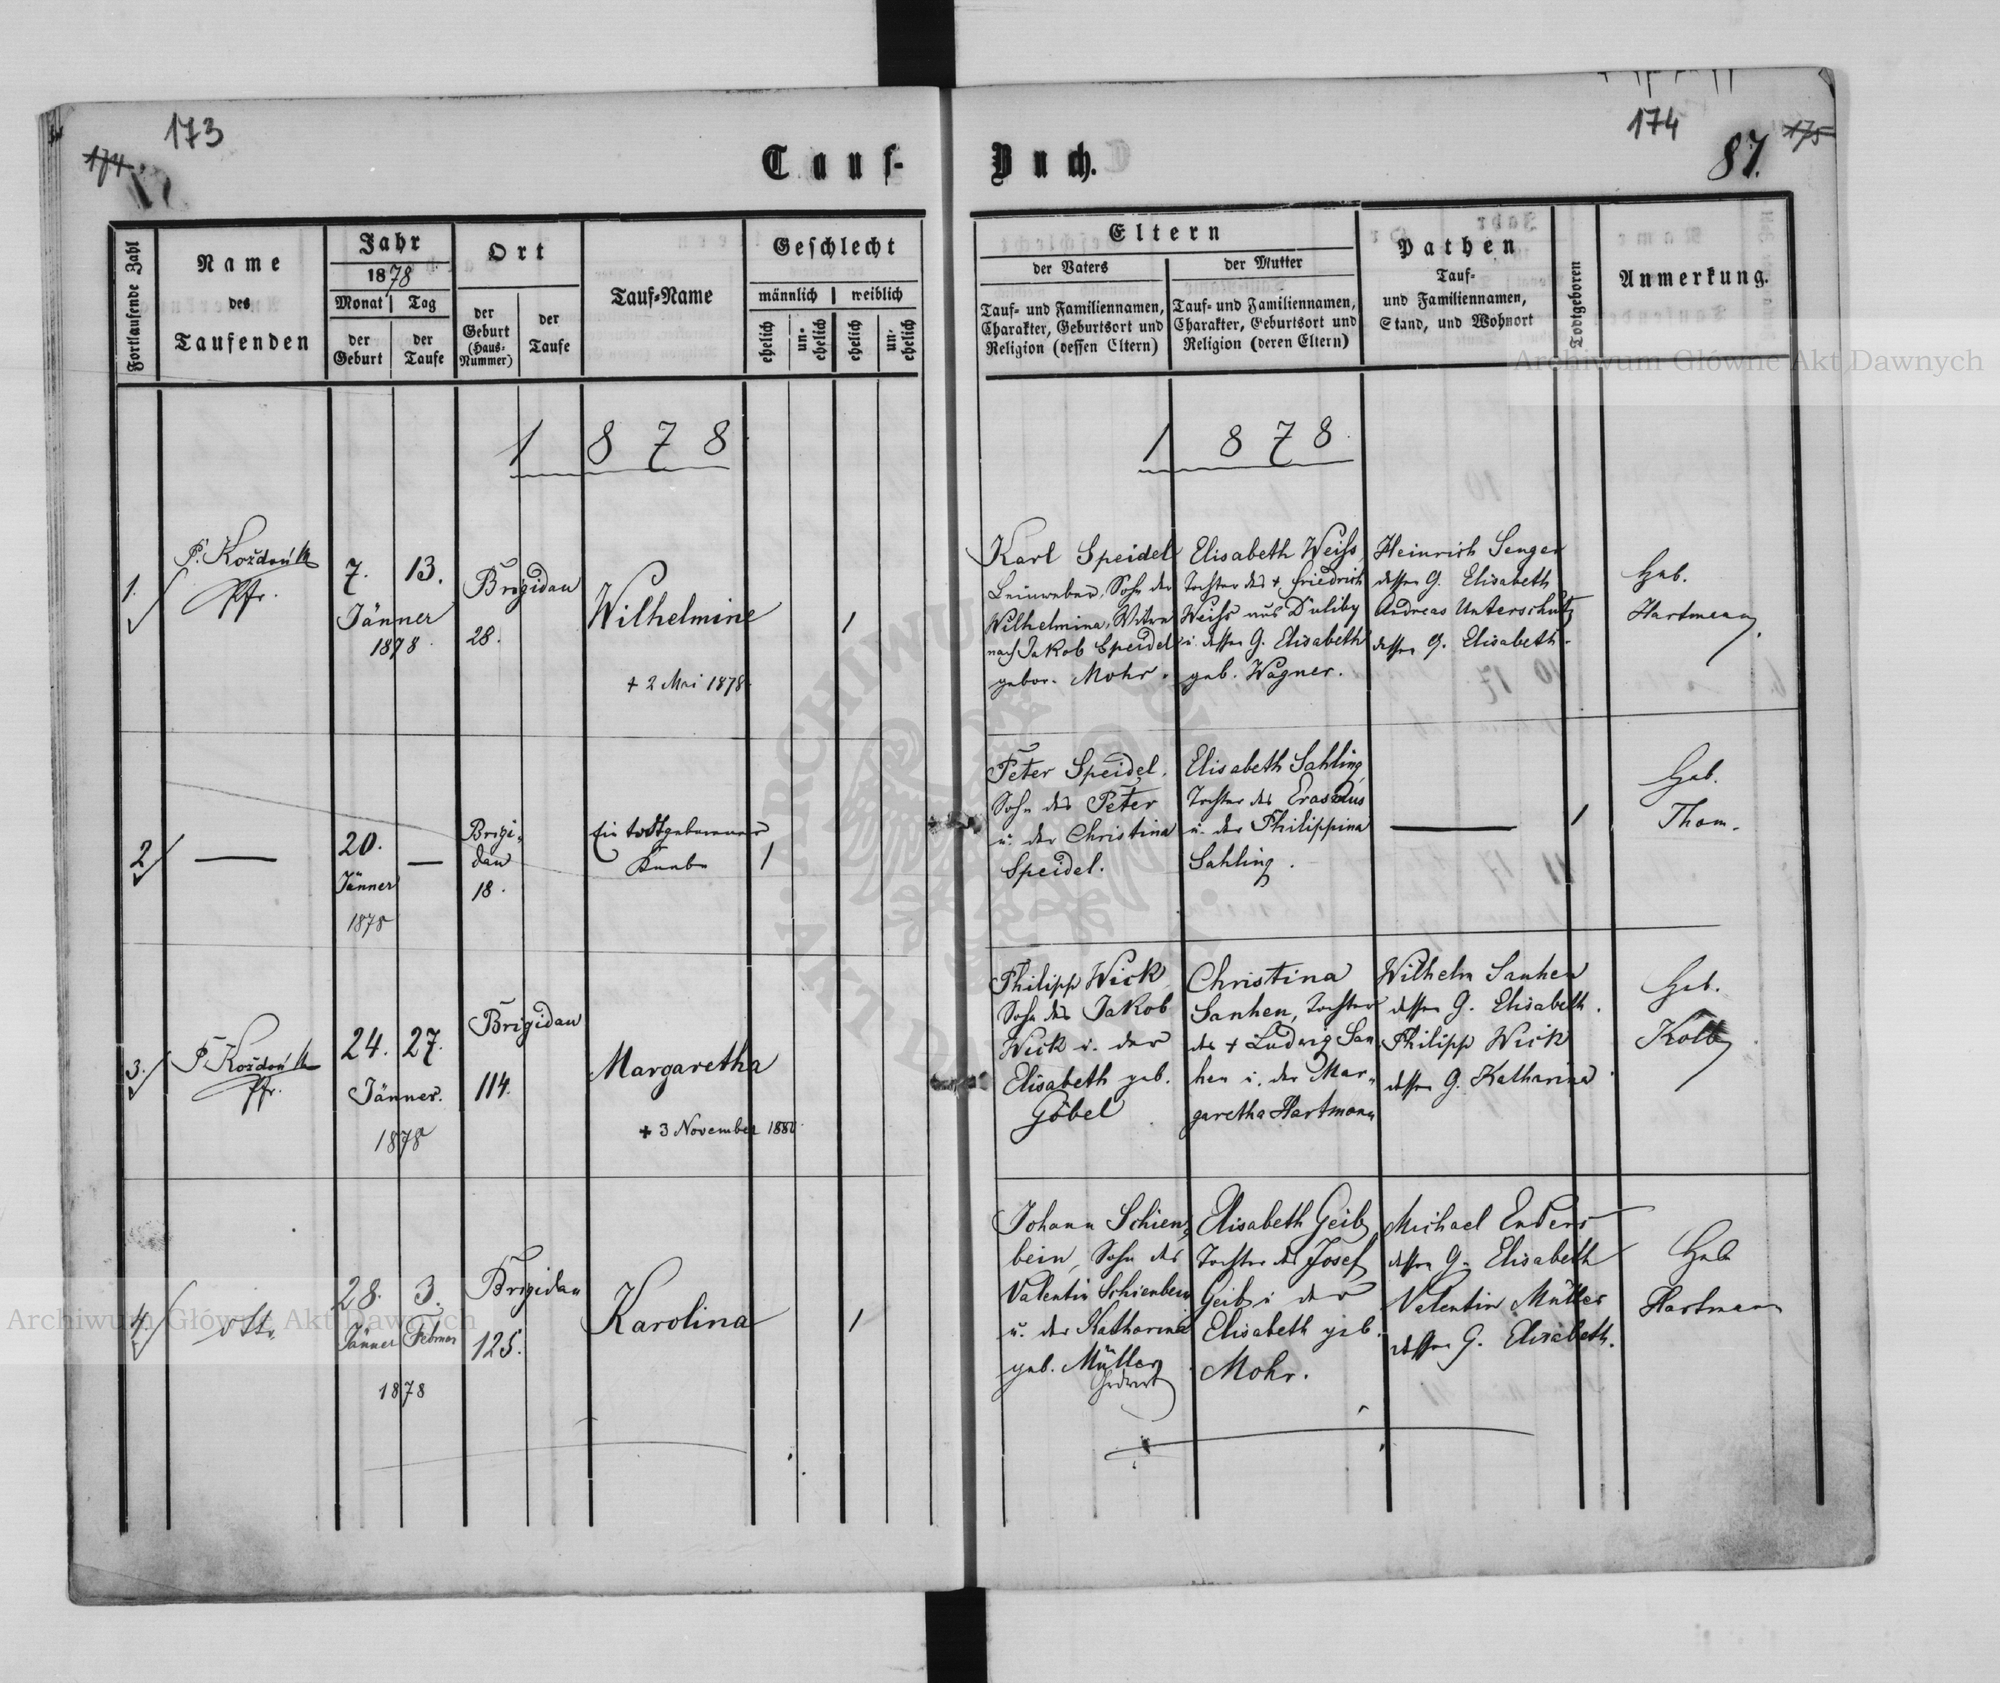 173
174
174
87.
175
Tauf-
Buch.
Fortlaufende Zahl
Name
des
Taufenden
Jahr
1878
Monat
Tag
der
Geburt
der
Taufe
Ort
der
Geburt
(Haus-
Nummer)
der
Taufe
Tauf-Name
Geschlecht
männlich
weiblich
ehelich
un-
ehelich
ehelich
un-
ehelich
Eltern
der Vaters
der Mutter
Tauf- und Familiennamen,
Charakter, Geburtsort und
Religion (dessen Eltern)
Tauf- und Familiennamen,
Charakter, Geburtsort und
Religion (deren Eltern)
Pathen
Tauf-
und Familiennamen,
Stand, und Wohnort
Todtgeboren
Anmerkung.
1878
1878.
1.
Pfr.
7.
13.
Jänner
1878
Brigidau
28.
Wilhelmine
+ 2 Mai 1878.
1
Karl Speidel
Leinweber, Sohn der
Wilhelmina, Witwe
nach Jakob Speidel
gebor. Mohr.
Elisabeth Weiss,
Tochter des + Friedrich
Weiss aus Duliby
u. dessen G. Elisabeth
geb. Wagner.
Heinrich Senger
dessen G. Elisabeth
Andreas Unterschutz
dessen G. Elisabeth.
Geb.
Hartmann
2
20.
Jänner
1878
Brigi-
dau
18.
Ein todtgeborener
Knabe
1
Peter Speidel,
Sohn des Peter
u. der Christina
Speidel.
Elisabeth Sahling,
Tochter des Erasmus
u. der Philippina
Sahling.
1
Geb.
Thom.
3.
Pfr.
24.
27.
Jänner.
1878
Brigidau
114.
Margaretha
+ 3 November
Philipp Wick,
Sohn des Jakob
Wick u. der
Elisabeth geb.
Göbel
Christina
Sanhen, Tochter
des + Ludwig San
hen u. der Mar-
garetha Hartmann
Wilhelm Sanhen
dessen G. Elisabeth.
Philipp Wick
dessen G. Katharina.
Geb.
Kolb
4.
dtto.
28.
3.
Jänner
Februar
1878
Brigidau
125.
Karolina
1
Johann Schien-
bein, Sohn des
Valentin Schienbein
u. der Katharina
geb. Müller
Elisabeth Geib,
Tochter des Josef
Geib u. der
Elisabeth geb.
Mohr.
Michael Enders
dessen G. Elisabeth
Valentin Müller
dessen G. Elisabeth.
Geb.
Hartmann
Archiwum Główne Akt Dawnych
Archiwum Główne Akt Dawnych